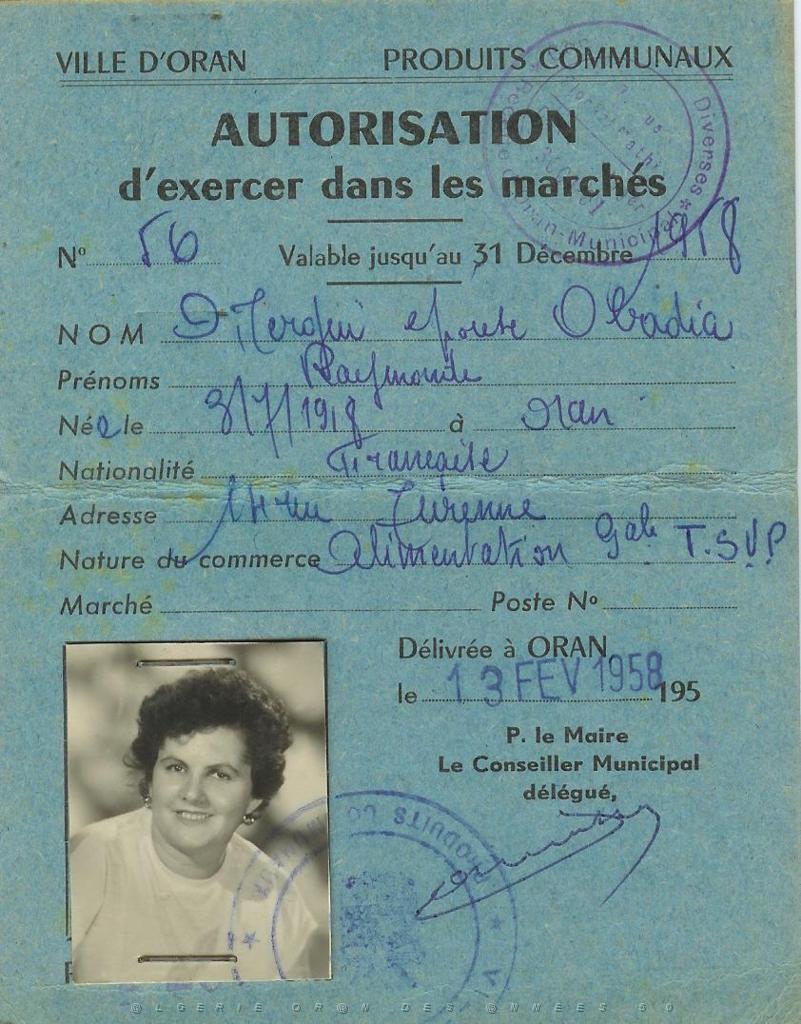 VILLE D'ORAN PRODUITS COMMUNAUX
AUTORISATION
d'exercer dans les marchés
N° 56 Valable jusqu'au 31 Décembre 1958
NOM épouse Obadia
Prénoms Raymonde
Née le 3/7/1918 à Oran
Nationalité Française
Adresse rue Turenne
Nature du commerce Alimentation Gale T.S.V.P
Marché Poste N°
Délivrée à ORAN
le 13 FEV 1958 195
P. le Maire
Le Conseiller Municipal
délégué,
Diverses * Municipal
PRODUITS COMMUNAUX
@LGERIE OR@N DES @NNEES 50